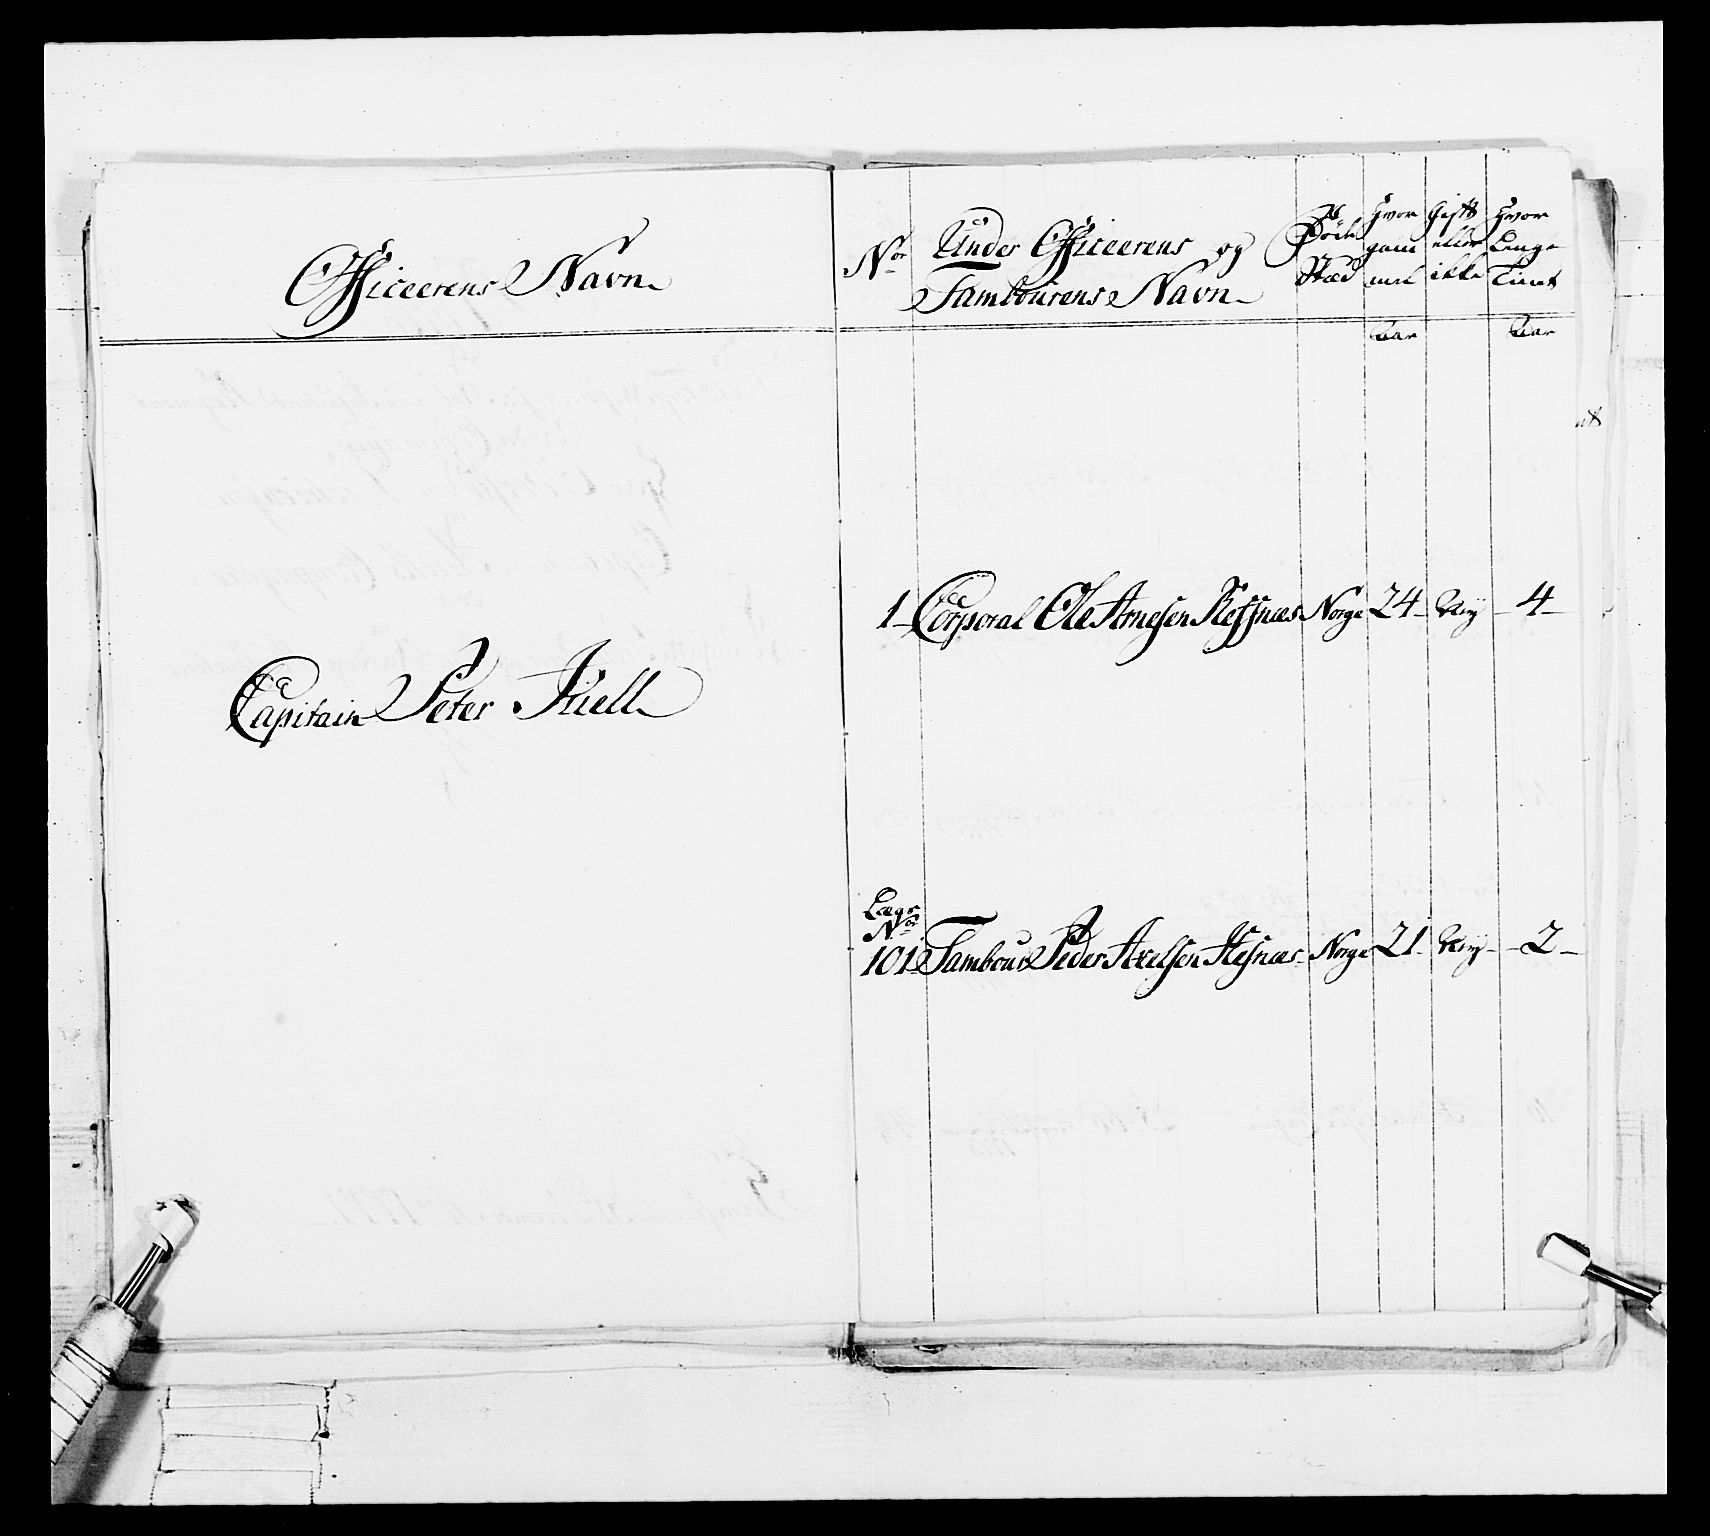 Officeerens Navn
Capitain Peter Kiell
No:
Under Officeerens og
Tambourens Navn
Föde
Stæd
Hvor
gam
mel
Aar
Gift
eller
ikke
Hvor
Længe
Tient
Aar
1 Corporal Ole Arnesen Refsnæs Norge 24 Neÿ 4
Lægs
No:
101 Tambour Peder Axelsen Hesnæs Norge 21 Neÿ 2